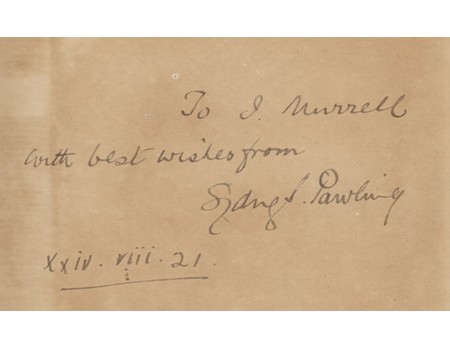 To J. Murrell
with best wishes from
Sydney S. Pawling
xxiv. viii. 21.